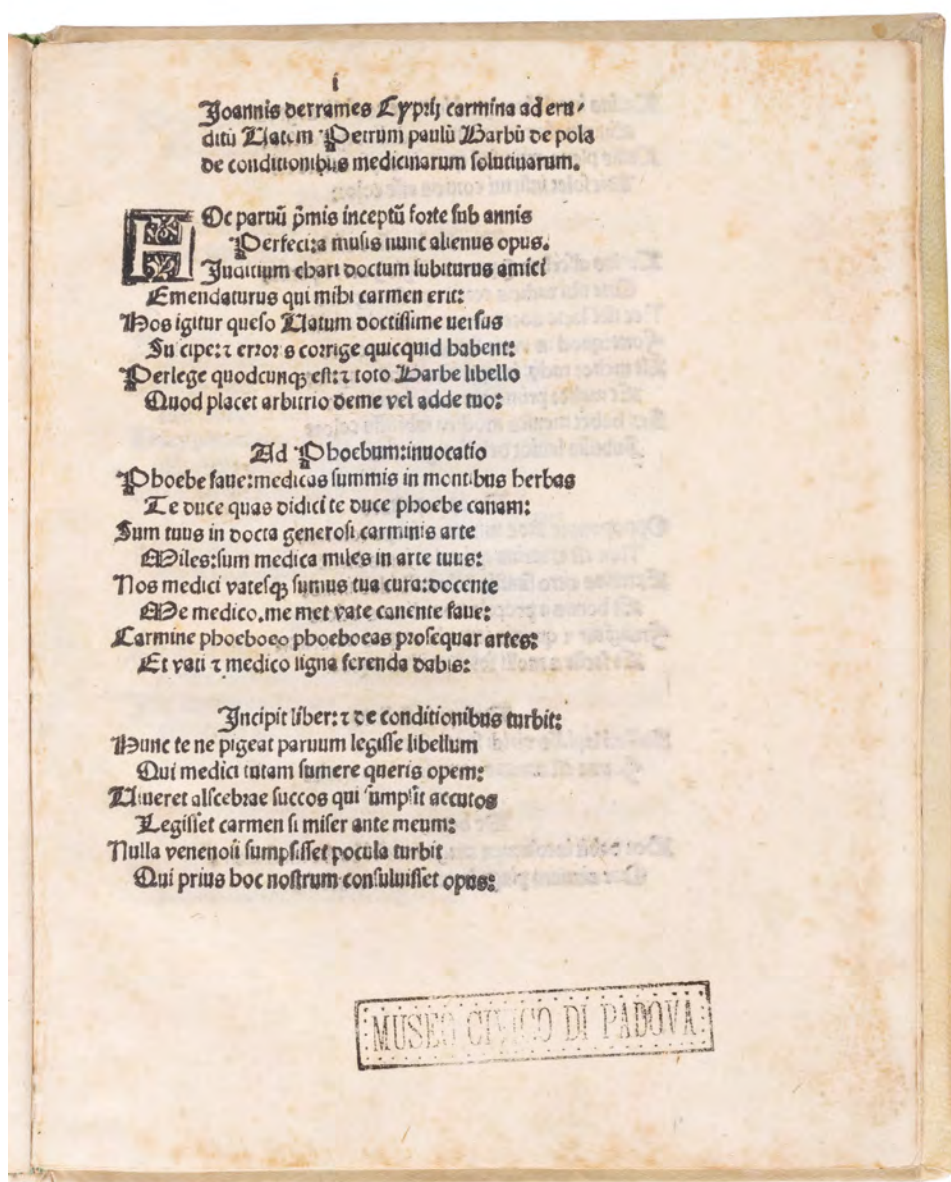 i
Joannis derrames Cyprij carmina ad eru-
ditū Vatem Petrum paulū Barbū de pola
de conditionibus medicinarum solutiuarum.
HOc paruū pͥmis inceptū forte sub annis
Perfeci:a musis nunc alienus opus.
Juditium chari doctum subiturus amici
Emendaturus qui mihi carmen erit:
Hos igitur queso Vatum doctissime uersus
Su cipe:⁊ error s corrige quicquid habent:
Perlege quodcunqꝫ est:⁊ toto Barbe libello
Quod placet arbitrio deme vel adde tuo:
Ad Phoebum:inuocatio
Phoebe faue:medicas summis in montibus herbas
Te duce quas didici te duce phoebe canam:
Sum tuus in docta generosi carminis arte
Miles:sum medica miles in arte tuus:
Nos medici vatesqꝫ sumus tua cura:docente
Me medico.me met vate canente faue:
Carmine phoeboeo phoeboeas prosequar artes:
Et vati ⁊ medico signa ferenda dabis:
Incipit liber:⁊ de conditionibus turbit:
Nunc te ne pigeat paruum legisse libellum
Qui medici tutam sumere queris opem:
Viueret alscebrae succos qui sumpsit accutos
Legisset carmen si miser ante meum:
Nulla venenosi sumpsisset pocula turbit
Qui prius hoc nostrum consuluisset opus:
MUSEO CIVICO DI PADOVA